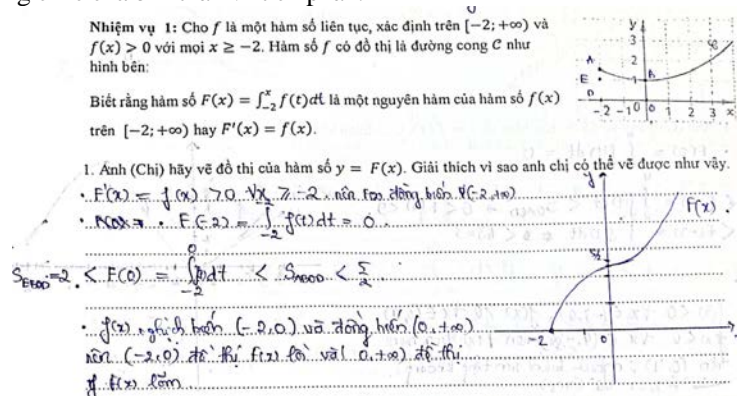 Nhiệm vụ 1: Cho f là một hàm số liên tục, xác định trên [-2; +∞) và
f(x) > 0 với mọi x ≥ -2. Hàm số f có đồ thị là đường cong C như
hình bên:
Biết rằng hàm số F(x) = ∫₋₂ˣ f(t)dt là một nguyên hàm của hàm số f(x)
trên [-2; +∞) hay F'(x) = f(x).
y
3
2
1
A
E
D
B
C
-2 -1 0 1 2 3 x
1. Anh (Chị) hãy vẽ đồ thị của hàm số y = F(x). Giải thích vì sao anh chị có thể vẽ được như vậy.
• F'(x) = f(x) > 0 ∀x ≥ -2 nên F(x) đồng biến (-2,+∞)
• F(-2) = ∫₋₂ f(t)dt = 0.
S = 2 < F(0) = ∫₋₂⁰ f(t)dt < S < 5/2
• f(x) nghịch biến (-2,0) và đồng biến (0,+∞)
nên (-2,0) đồ thị F(x) lồi và (0,+∞) đồ thị
F(x) lõm
y
F(x)
5/2
-2
0